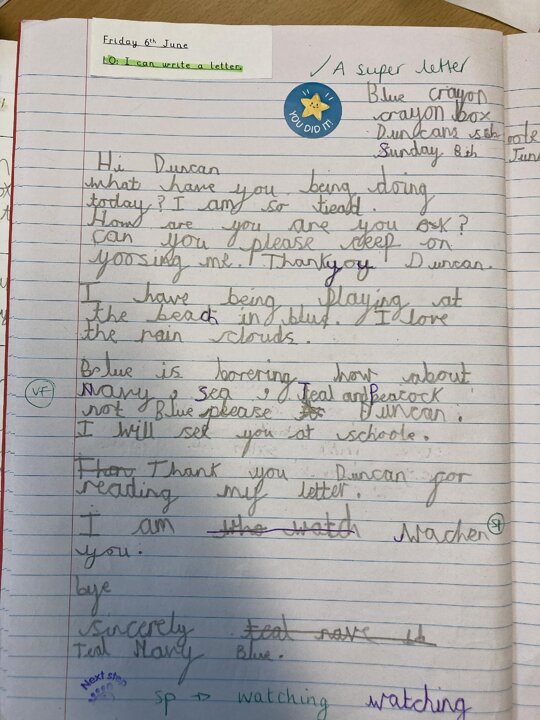 Friday 6th June
LO: I can write a letter.
✓ A super letter
YOU DID IT!
Blue crayon
crayon box
Duncans schoole
Sunday 8th June
Hi Duncan
what have you being doing
today? I am so tead.
How are you are you ok?
can you please keep on
yoosing me. Thankyoy Duncan.
I have being playing at
the beach in blue. I love
the rain clouds.
Blue is borering how about
VF
Navy, Sea, Teal and Peacock
not Blue please Duncan.
I will see you at schoole.
Thank you Duncan for
reading my letter.
I am who watch Wachen
sp
you.
bye
sincerely
Teal Navy Blue.
Next step
sp → watching watching